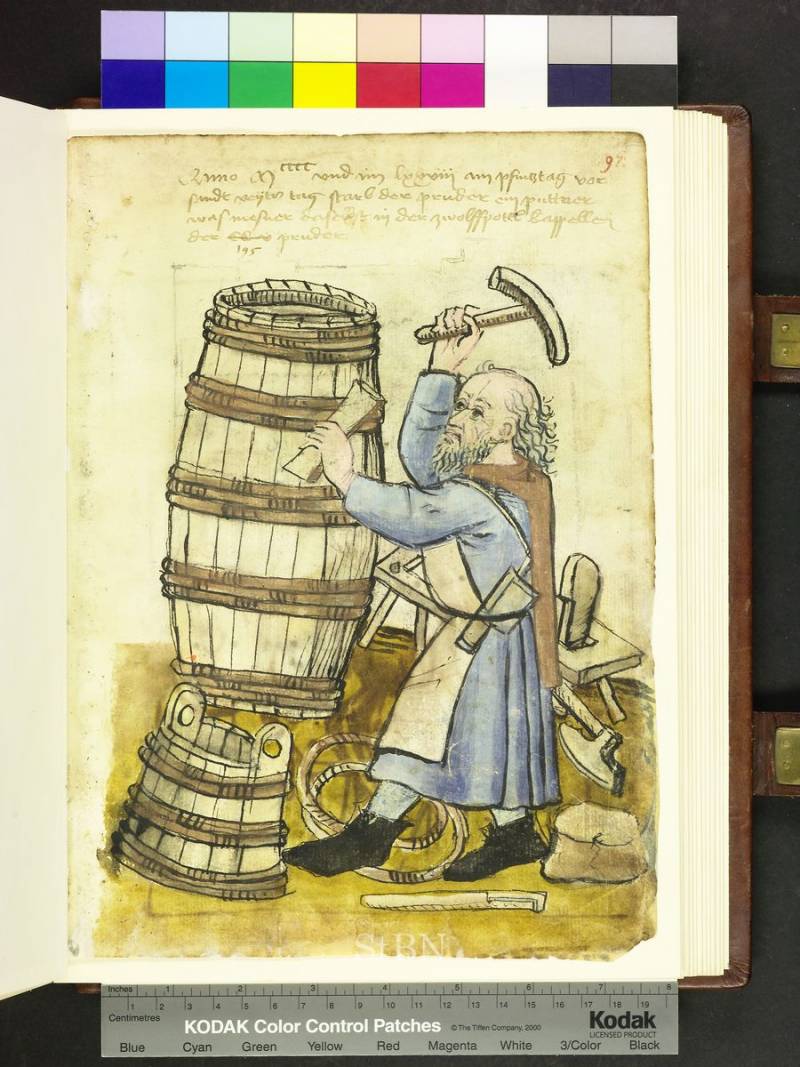 97
Anno M cccc vnd im lxxviii am pfincztag vor
sandt veytz tag starb der pruder ein püttner
was mesner in der zwolffpott kappellen
der pruder
195
StBN
Inches 1 2 3 4 5 6 7 8
Centimetres 1 2 3 4 5 6 7 8 9 10 11 12 13 14 15 16 17 18 19
KODAK Color Control Patches © The Tiffen Company, 2000 Kodak
LICENSED PRODUCT
Blue Cyan Green Yellow Red Magenta White 3/Color Black